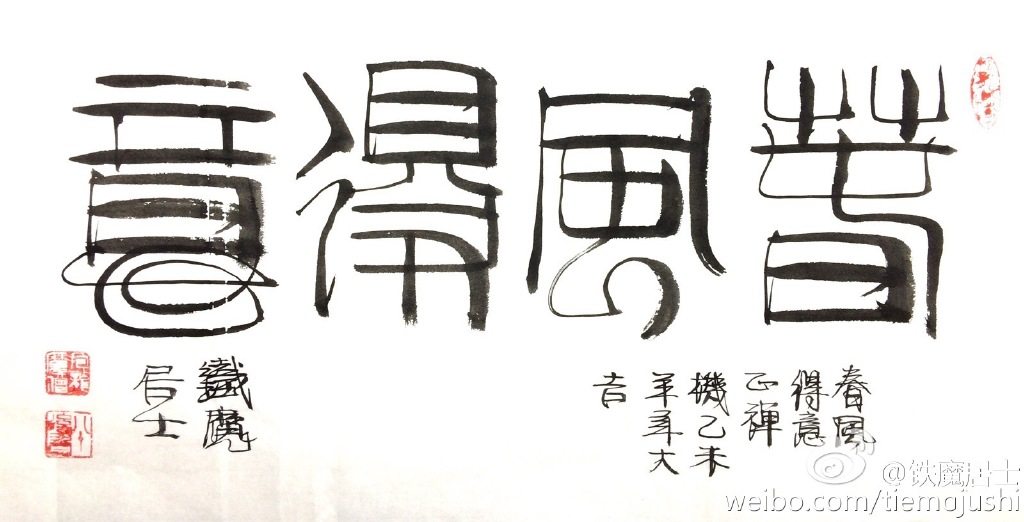 春風得意
春風
得意
正禪
機乙未
羊年大
吉
鐵魔
居士
@铁魔居士
weibo.com/tiemojushi